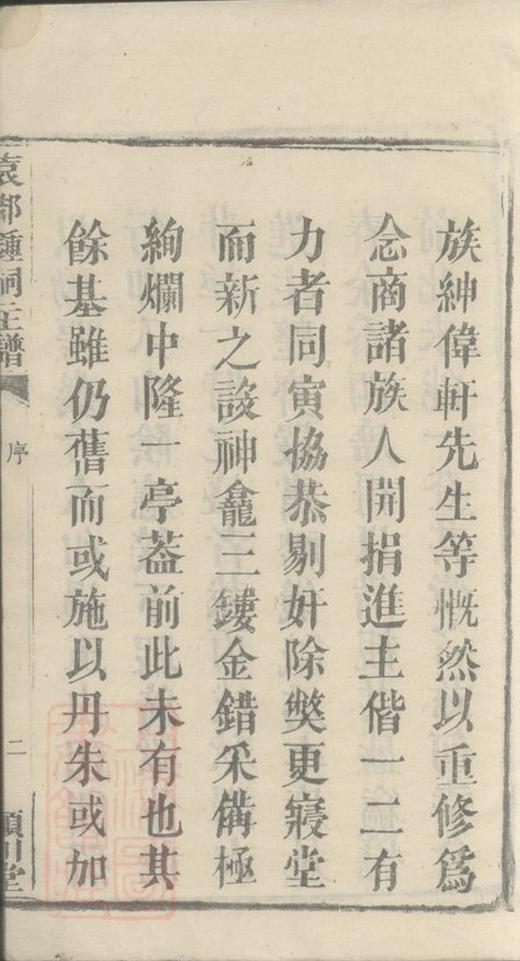 族紳偉軒先生等慨然以重修為
念商諸族人開捐進主偕一二有
力者同寅協恭剔奸除獘更寢堂
而新之設神龕三鏤金錯采備極
絢爛中隆一亭葢前此未有也其
餘基雖仍舊而或施以丹朱或加
袁郡鍾祠主譜
序
二
潁川堂